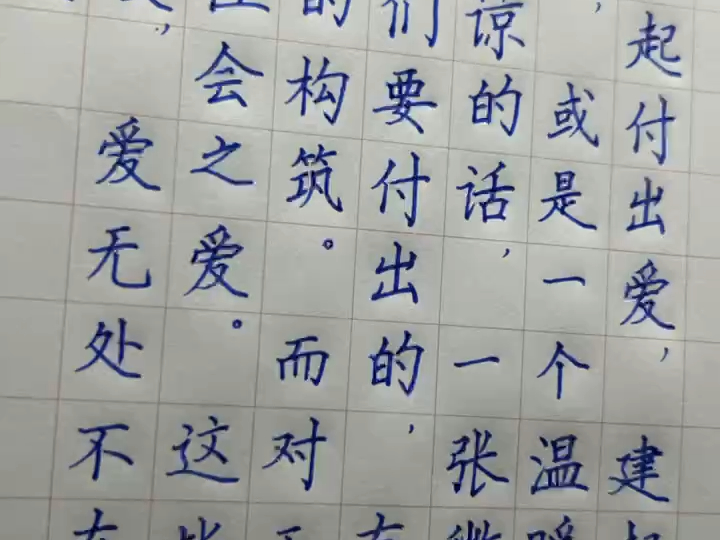 ，爱无处不
会之爱。这
的构筑。而对
们要付出的，
谅的话，一张微
，或是一个温暖
起付出爱，建